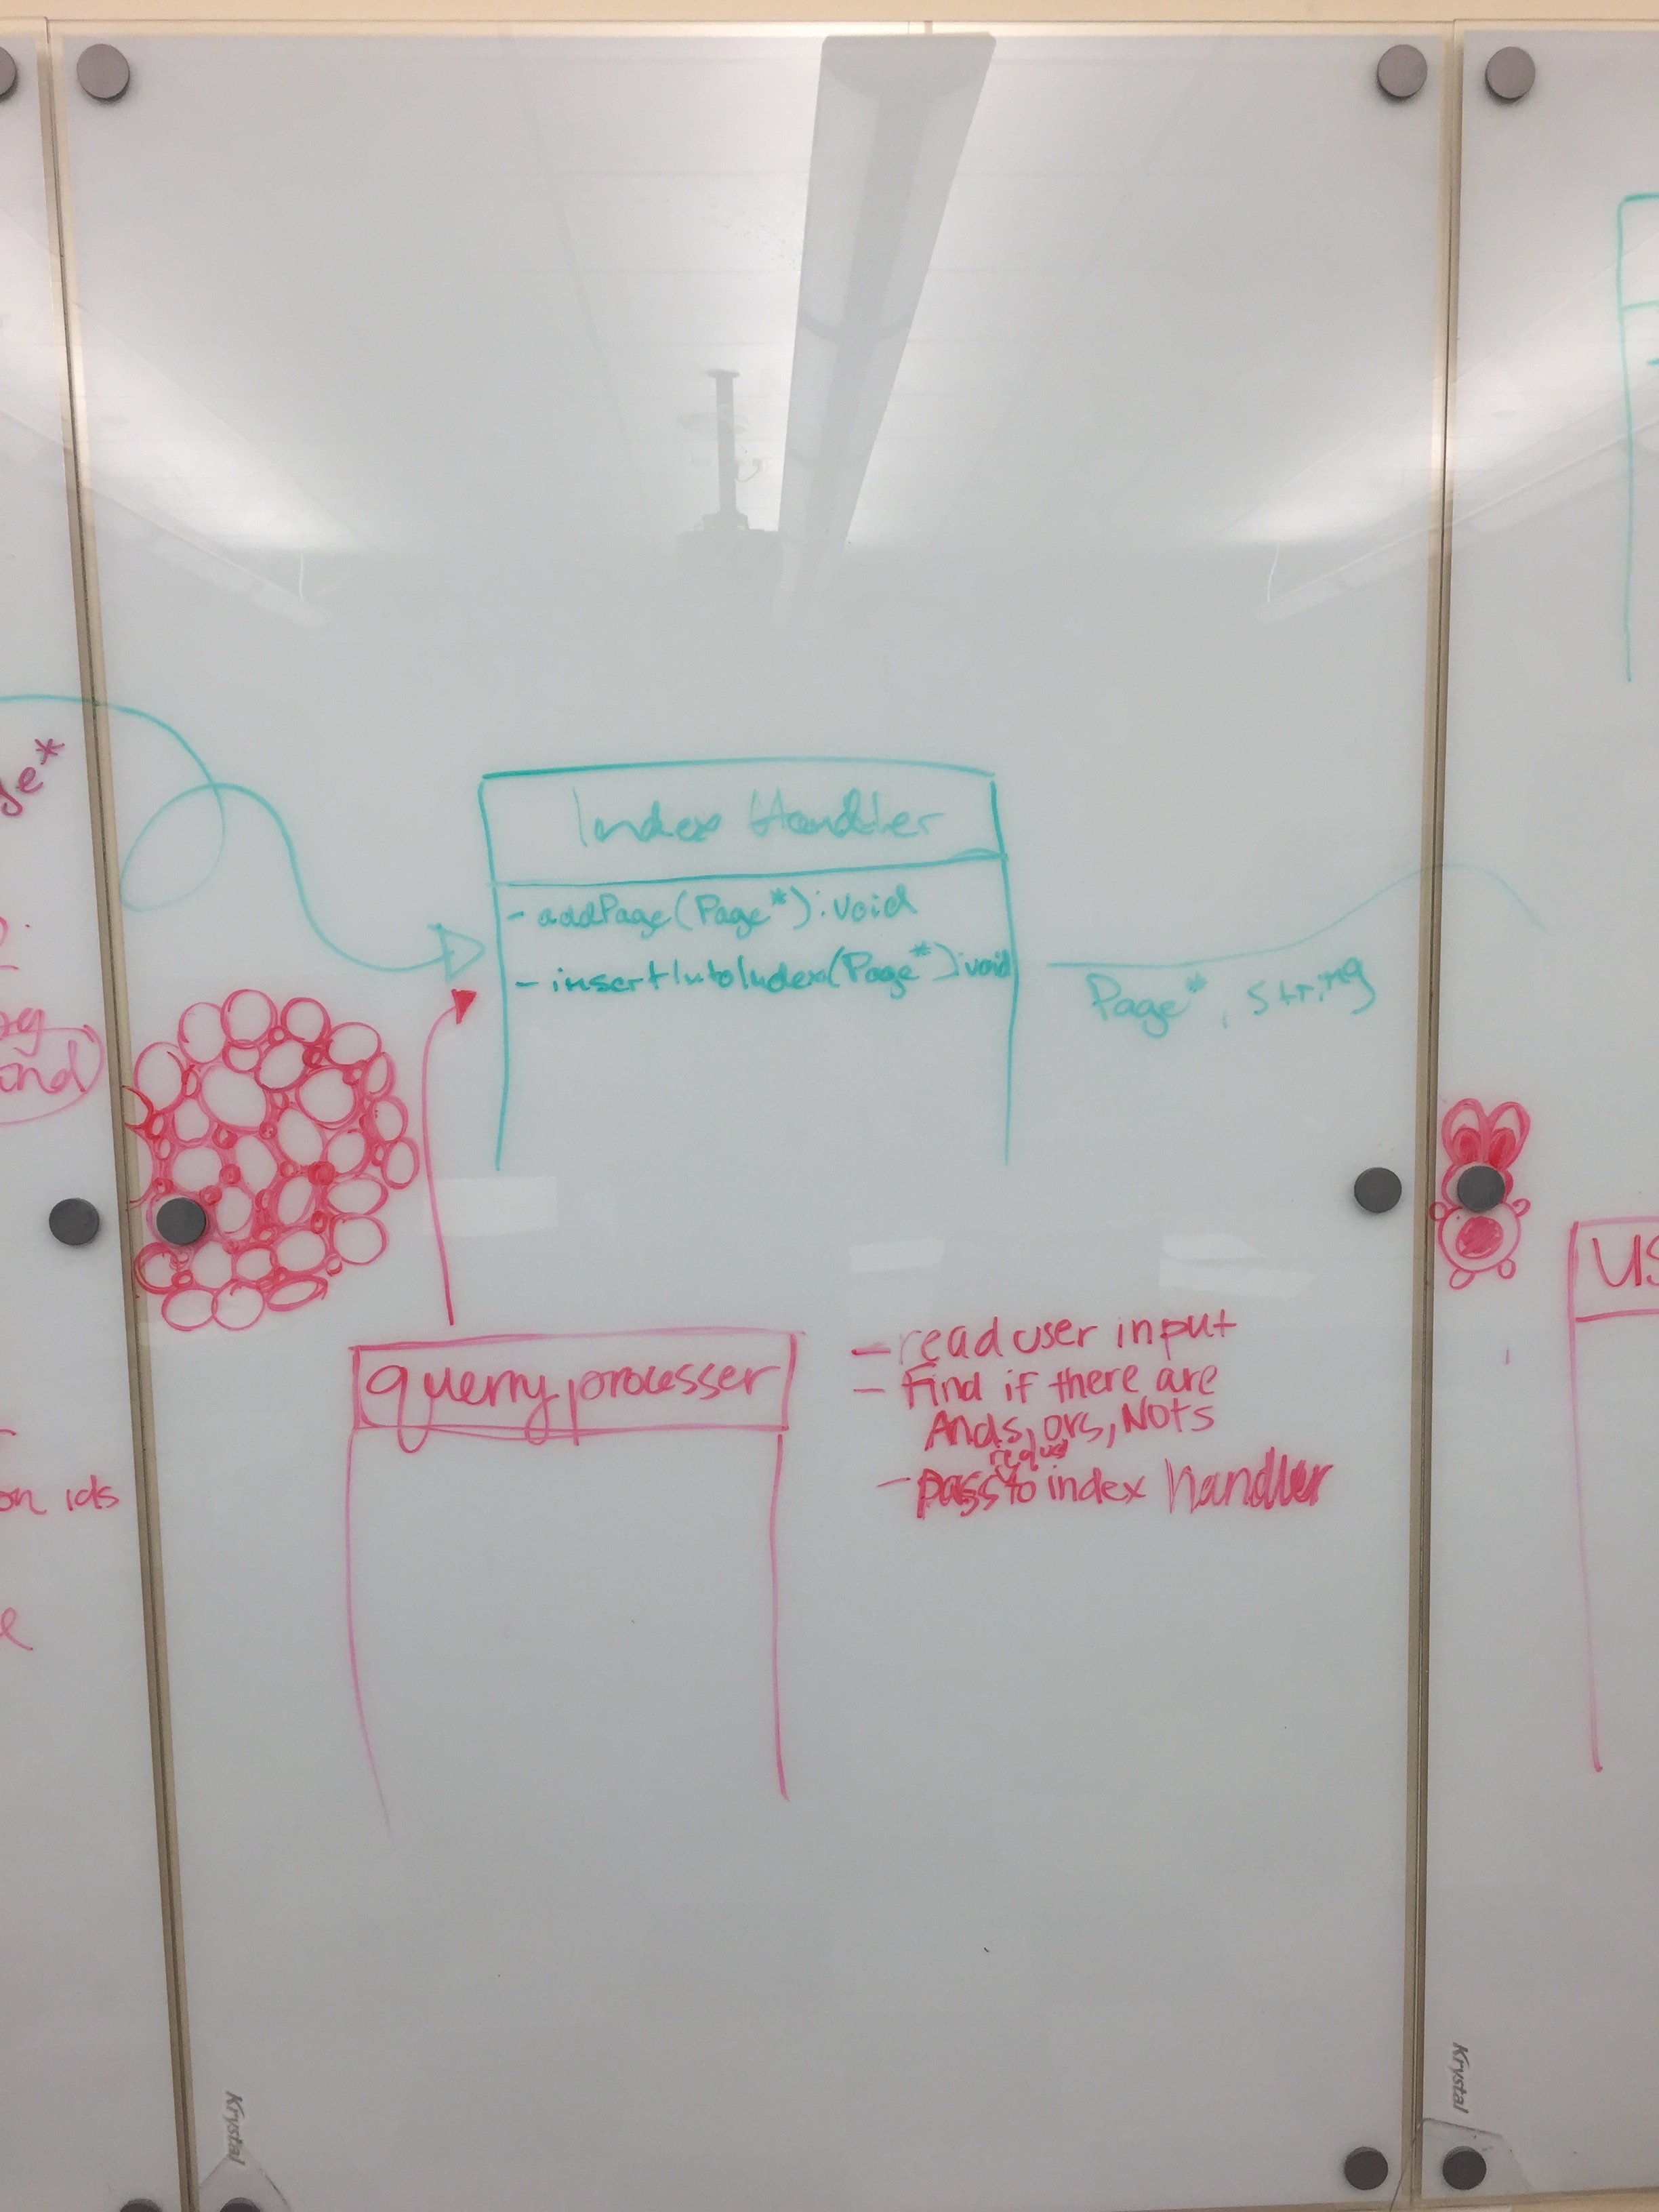 Index Handler
- addPage(Page*):void
- insertIntoIndex(Page*):void
Page*, string
querry processer
- read user input
- Find if there are
Ands, ors, Nots
- pass to index handler
on ids
US
Krystal
Krystal